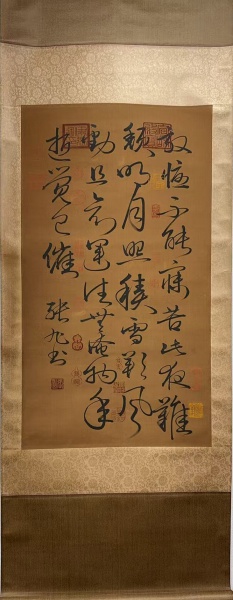 殷忧不能寐苦此夜难
颓明月照积雪朔风
劲且哀运往无淹物年
逝觉已催 张旭书